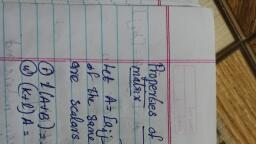 Properties of
matrix
Let A = [aij]
of the same
are scalars
(i) k(A+B) =
(ii) (k+l)A =